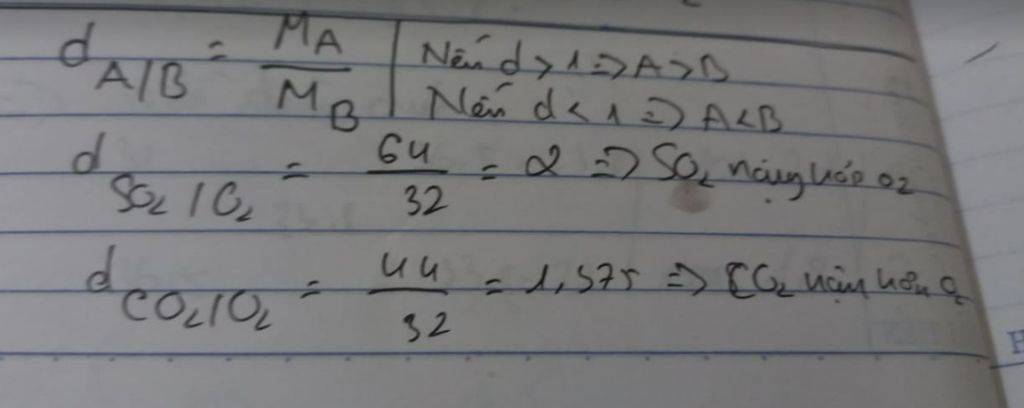 d A/B = MA / MB | Nếu d > 1 => A > B
Nếu d < 1 => A < B
d SO2 / O2 = 64 / 32 = 2 => SO2 nặng hơn O2
d CO2/O2 = 44 / 32 = 1,375 => CO2 nặng hơn O2